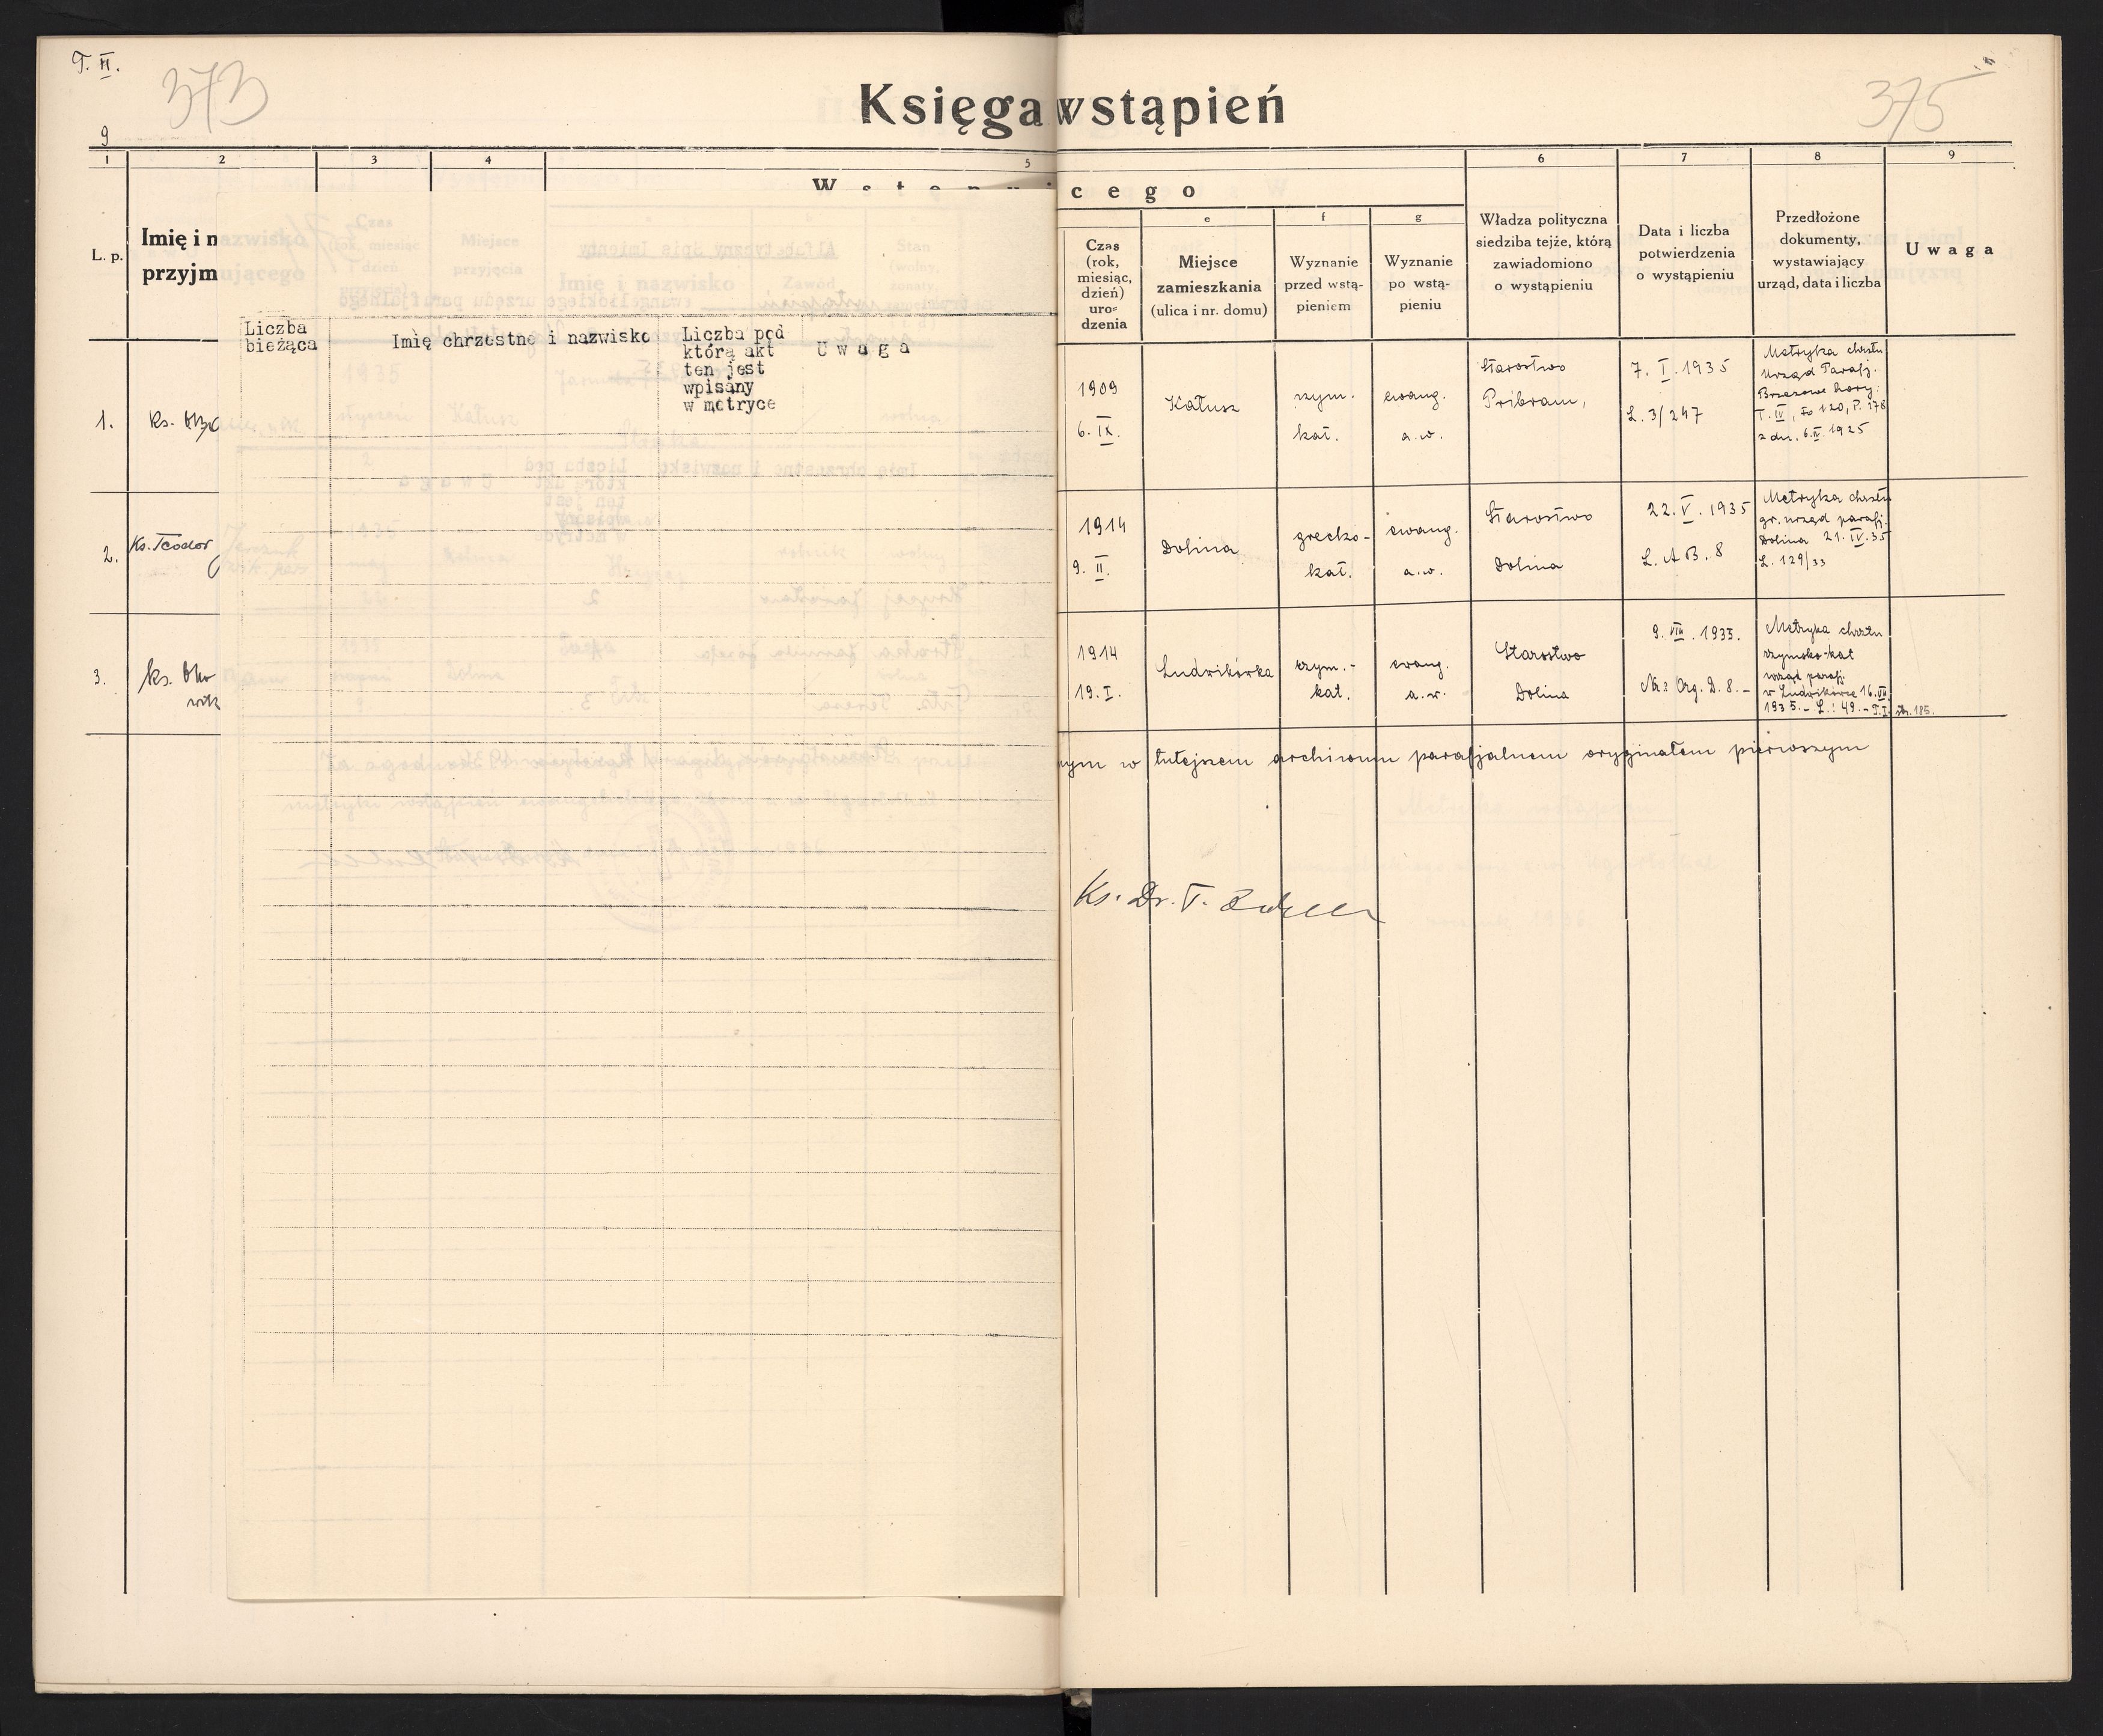 T. II.
373
375
Księga wstąpień
9
1 2 3 4 5 6 7 8 9
cego
L. p.
Imię i n
przyjm
e f g
Czas
(rok,
miesiąc,
dzień)
uro=
dzenia
Miejsce
zamieszkania
(ulica i nr. domu)
Wyznanie
przed wstą-
pieniem
Wyznanie
po wstą-
pieniu
Władza polityczna
siedziba tejże, którą
zawiadomiono
o wystąpieniu
Data i liczba
potwierdzenia
o wystąpieniu
Przedłożone
dokumenty,
wystawiający
urząd, data i liczba
Uwaga
Liczba
bieżąca
Imię chrzestne i nazwisko
Liczba pod
którą akt
ten jest
wpisany
w metryce
Uwaga
1.
ks.
1909
6. IX.
Kałusz
rzym.
kat.
ewang.
a.w.
Starostwo
Pribram,
7. I. 1935
L. 3/247
Metryka chrztu
Urząd Parafj.
Brzezowe hory:
T. IV, fo 120, P. 178
z dn. 6.II.1925
2.
Ks. Teodor
1914
9. II.
Dolina
grecko-
kat.
ewang.
a.w.
Starostwo
Dolina
22. V. 1935
L. AB. 8
Metryka chrztu
gr. urząd parafj.
Dolina 21. IV. 35
L. 129/33
3.
ks.
1914
19. I.
Ludwikówka
rzym.-
kat.
ewang.
a.w.
Starostwo
Dolina
9. VIII. 1935.
Nr: Org. D. 8.-
Metryka chrztu
rzymsko-kat
urząd parafj.
w Ludwikówce 16. VII
1935.- L.: 49.- T.I. str. 185.
nym w tutejszem archiwum parafjalnem oryginałem pierwszym
Ks. Dr. T.